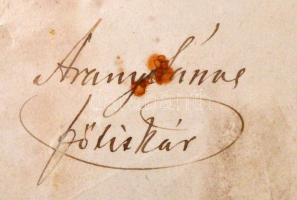 Arany János
főtitkár